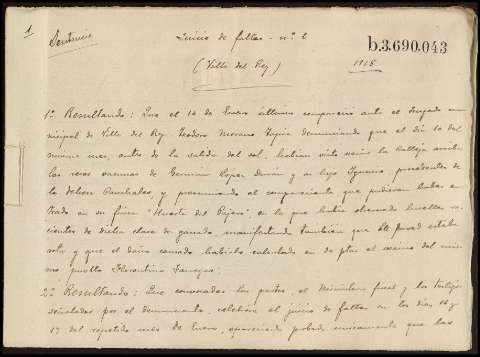 1
Sentencia
Juicio de faltas - nº 6
b.3.690.043
(Villar del Rey)
1915
1º Resultando: Que el 14 de Enero último compareció ante el Juzgado mu-
nicipal de Villar del Rey Teodoro Moreno denunciando que el día 10 del
mismo mes, antes de la salida del sol, habían visto venir la calleja arriba
las reses vacunas de German Lopez Durán y su hijo procedentes
de la dehesa y presumiendo el compareciente que pudieran haber en-
trado en su finca "Huerta del Pájaro", en la que había observado huellas re-
cientes de dicha clase de ganado, manifestando también que la pared estaba
rota y que el daño causado habíalo calculado en ptas el vecino del mis-
mo pueblo Florentino
2º Resultando: Que convocadas las partes, el Ministerio fiscal y los testigos
señalados por el denunciante, celebróse el juicio de faltas en los días 16 y
17 del repetido mes de Enero, apareciendo probado únicamente que las